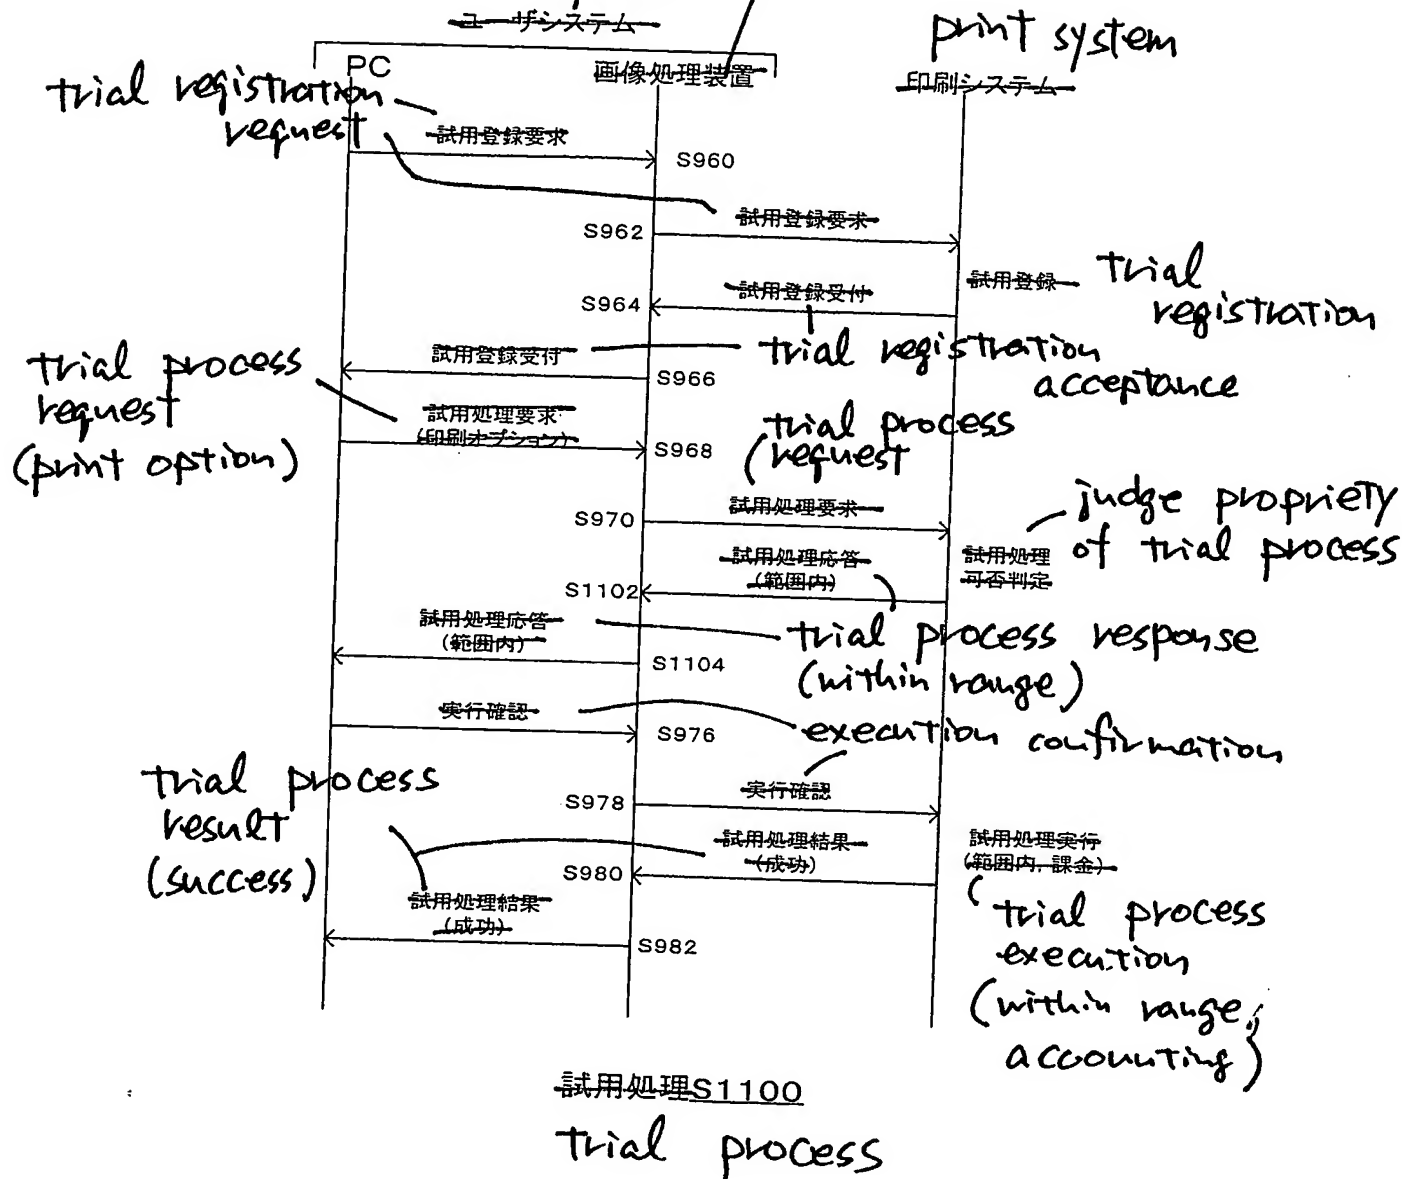 ユーザシステム
print system
PC
画像処理装置
印刷システム
trial registration
request
試用登録要求
S960
試用登録要求
S962
試用登録
trial
registration
試用登録受付
S964
試用登録受付
trial registration
acceptance
S966
trial process
request
(print option)
試用処理要求
(印刷オプション)
S968
trial process
(request
試用処理要求
S970
judge propriety
of trial process
試用処理
可否判定
試用処理応答
(範囲内)
S1102
試用処理応答
(範囲内)
trial process response
(within range)
S1104
実行確認
S976
execution confirmation
実行確認
S978
trial process
result
(success)
試用処理結果
(成功)
S980
試用処理実行
(範囲内,課金)
試用処理結果
(成功)
S982
(trial process
execution
(within range,
accounting)
試用処理S1100
trial process